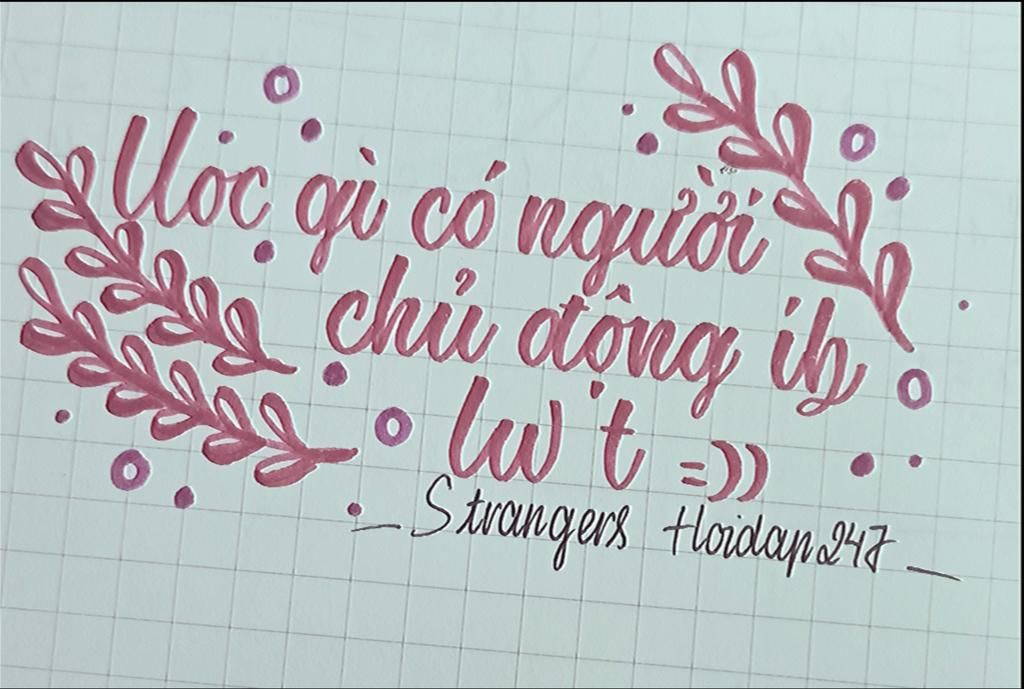 Uoc gì có người
chủ động ib
lw't =))
_ Strangers Hoidap247 _